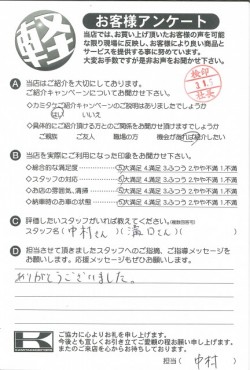 軽
お客様アンケート
当店では、お買い上げ頂いたお客様の声を可能
な限り現場に反映し、お客様により良い商品と
サービスを提供する事に努めています。
大変お手数ですが是非お声をお聞かせ下さい。
A 当店はご紹介を大切にしております。
ご紹介キャンペーンについてお聞かせ下さい。
◇カミタケご紹介キャンペーンのご説明はありましたでしょうか
はい いいえ
◇具体的にご紹介頂ける方とのご関係をお聞かせ頂けますでしょうか
ご親族 ご友人 職場の方 機会があれば紹介したい
B 当店を実際にご利用になった印象をお聞かせ下さい。
◇総合的な満足度 5.大満足 4.満足 3.ふつう 2.やや不満 1.不満
◇スタッフの対応 5.大満足 4.満足 3.ふつう 2.やや不満 1.不満
◇お店の雰囲気、清掃 5.大満足 4.満足 3.ふつう 2.やや不満 1.不満
◇納車時のお車の状態 5.大満足 4.満足 3.ふつう 2.やや不満 1.不満
C 評価したいスタッフがいれば教えてください。(複数回答可)
スタッフ名 (中村さん)(溝口さん)
D 担当させて頂きましたスタッフへのご指摘、ご指導メッセージを
お願いします。応援メッセージもぜひお願いします。
ありがとうございました。
K
ご協力に心よりお礼を申し上げます。
今後とも宜しくお引き立てご愛顧の程お願い申し上げます。
またのご来店を心からお待ちしております。
担当(中村)